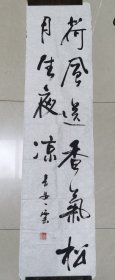 荷風送香氣松
月生夜凉